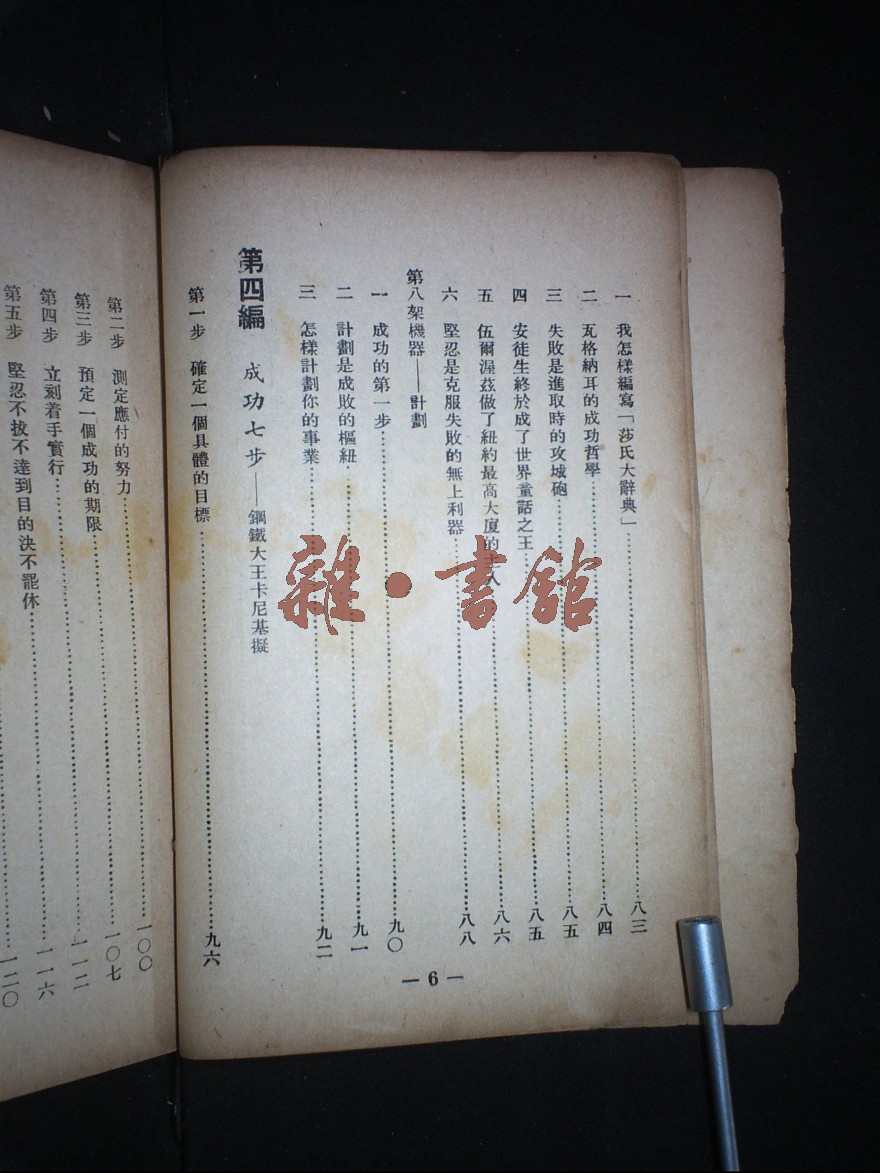 一 我怎樣編寫「莎氏大辭典」……八三
二 瓦格納耳的成功哲學……八四
三 失敗是進取時的攻城砲……八五
四 安徒生終於成了世界童話之王……八五
五 伍爾渥茲做了紐約最高大廈的主人……八六
六 堅忍是克服失敗的無上利器……八八
第八架機器——計劃
一 成功的第一步……九〇
二 計劃是成敗的樞紐……九一
三 怎樣計劃你的事業……九二
第四編 成功七步——鋼鐵大王卡尼基擬
第一步 確定一個具體的目標……九六
—6—
第二步 測定應付的努力……一〇〇
第三步 預定一個成功的期限……一〇七
第四步 立刻着手實行……一一二
第五步 堅忍不拔不達到目的決不罷休……一一六
一二〇
雜·書館